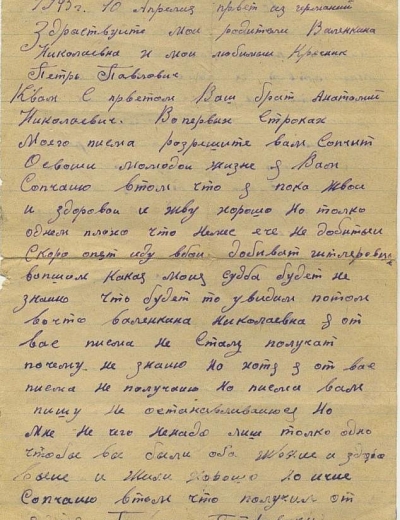 1945 г. 10 Апреля привет из германии
Здраствуите мои родители Валенкина
Николаевна и мои любимыи Кресник
Петрь Павлович
К вам С преветом Ваш брат Анатолий
Николаевич. Во первых Строках
Моего писма разрешите вам Сопчит
О своии молодои жизне я Вам
Сопчаю втом что я пока живои
и здоровои и жву хорошо Но толко
одном плохо что Немес ече не добитыи
Скоро опят иду вбои добиват гитлеровц
вопшим Какая Моия судба будет не
знаию что будет то увидим потом
вочто валенкина Николаевна я от
вас писма не Стал получат
почему не знаию Но хотя я от вас
писма не получаию Но писма вам
пишу не останавливаюся Но
Мне не чего ненадо лиш толко одно
чтобы вы были оба живые и здоро
выие и жили хорошо
Сопчаию втом что получил от